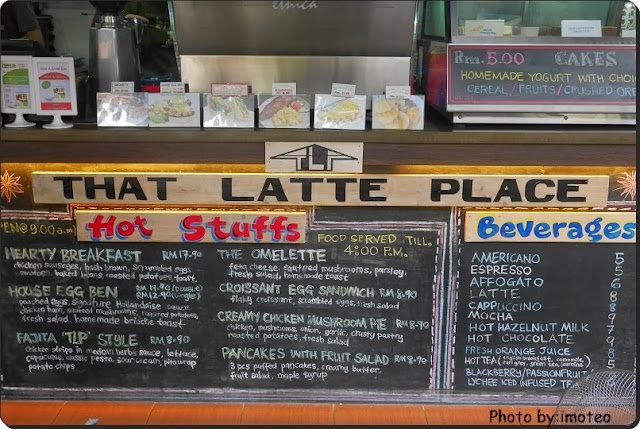 Rm. 5.00 CAKES
HOMEMADE YOGURT WITH
CEREAL / FRUITS / CRUSHED
TLP
THAT LATTE PLACE
OPEN @ 9.00 a.m
Hot Stuffs
FOOD SERVED TILL..
4:00 P.M.
HEARTY BREAKFAST RM 17.90
chicken sausages, hash brown, scrambled eggs
tomatoes, baked beans, roasted potatoes, toast
HOUSE EGG BEN RM 17.90 (double)
RM 12.90 (single)
poached eggs, signature Hollandaise sauce,
chicken ham, sauteed mushrooms, roasted potatoes,
fresh salad, homemade brioche toast
FAJITA 'TLP' STYLE RM 8.90
chicken strips in mexican herbs sauce, lettuce,
capsicums, cheese, pesto, sour cream, pita wrap
potato chips
THE OMELETTE
feta cheese, sauteed mushrooms, parsley,
fresh salad, homemade toast
CROISSANT EGG SANDWICH RM 8.90
flaky croissant, scrambled eggs, fresh salad
CREAMY CHICKEN MUSHROOM PIE RM 8.90
chicken, mushrooms, onion, garlic, chasty pastry
roasted potatoes, fresh salad
PANCAKES WITH FRUIT SALAD RM 8.90
3 pcs puffed pancakes, creamy butter,
fruit salad, maple syrup
Beverages
AMERICANO 5
ESPRESSO 5
AFFOGATO 6
LATTE 8
CAPPUCCINO
MOCHA
HOT HAZELNUT MILK
HOT CHOCOLATE 9
FRESH ORANGE JUICE 8
HOT TEA (english breakfast, camomile,
earl grey, green tea, jasmine)
BLACKBERRY/PASSIONFRUIT/
LYCHEE ICED INFUSED TEA
Photo by:imoteo